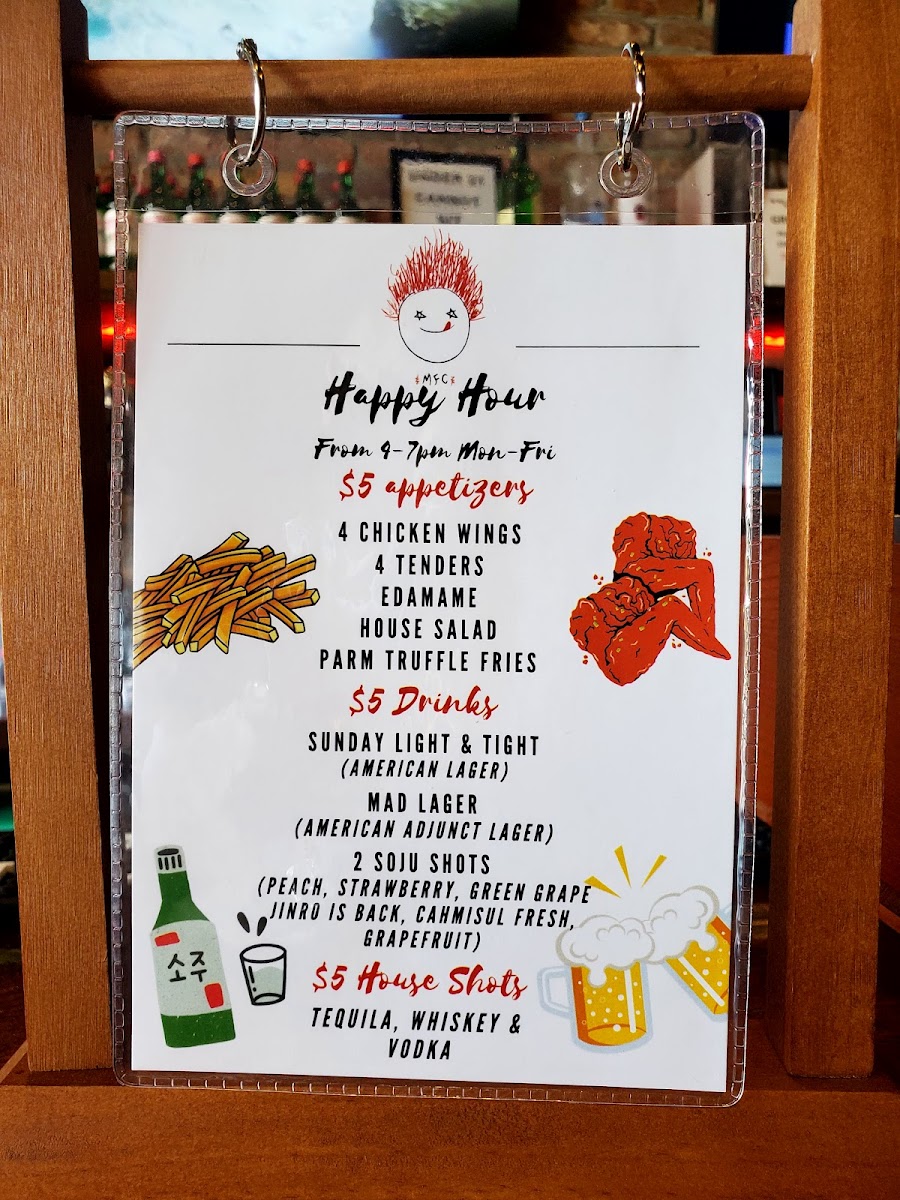 UNDER 21
CANNOT
SIT
MFC
Happy Hour
From 4-7pm Mon-Fri
$5 appetizers
4 CHICKEN WINGS
4 TENDERS
EDAMAME
HOUSE SALAD
PARM TRUFFLE FRIES
$5 Drinks
SUNDAY LIGHT & TIGHT
(AMERICAN LAGER)
MAD LAGER
(AMERICAN ADJUNCT LAGER)
2 SOJU SHOTS
(PEACH, STRAWBERRY, GREEN GRAPE
JINRO IS BACK, CAHMISUL FRESH,
GRAPEFRUIT)
소주
$5 House Shots
TEQUILA, WHISKEY &
VODKA